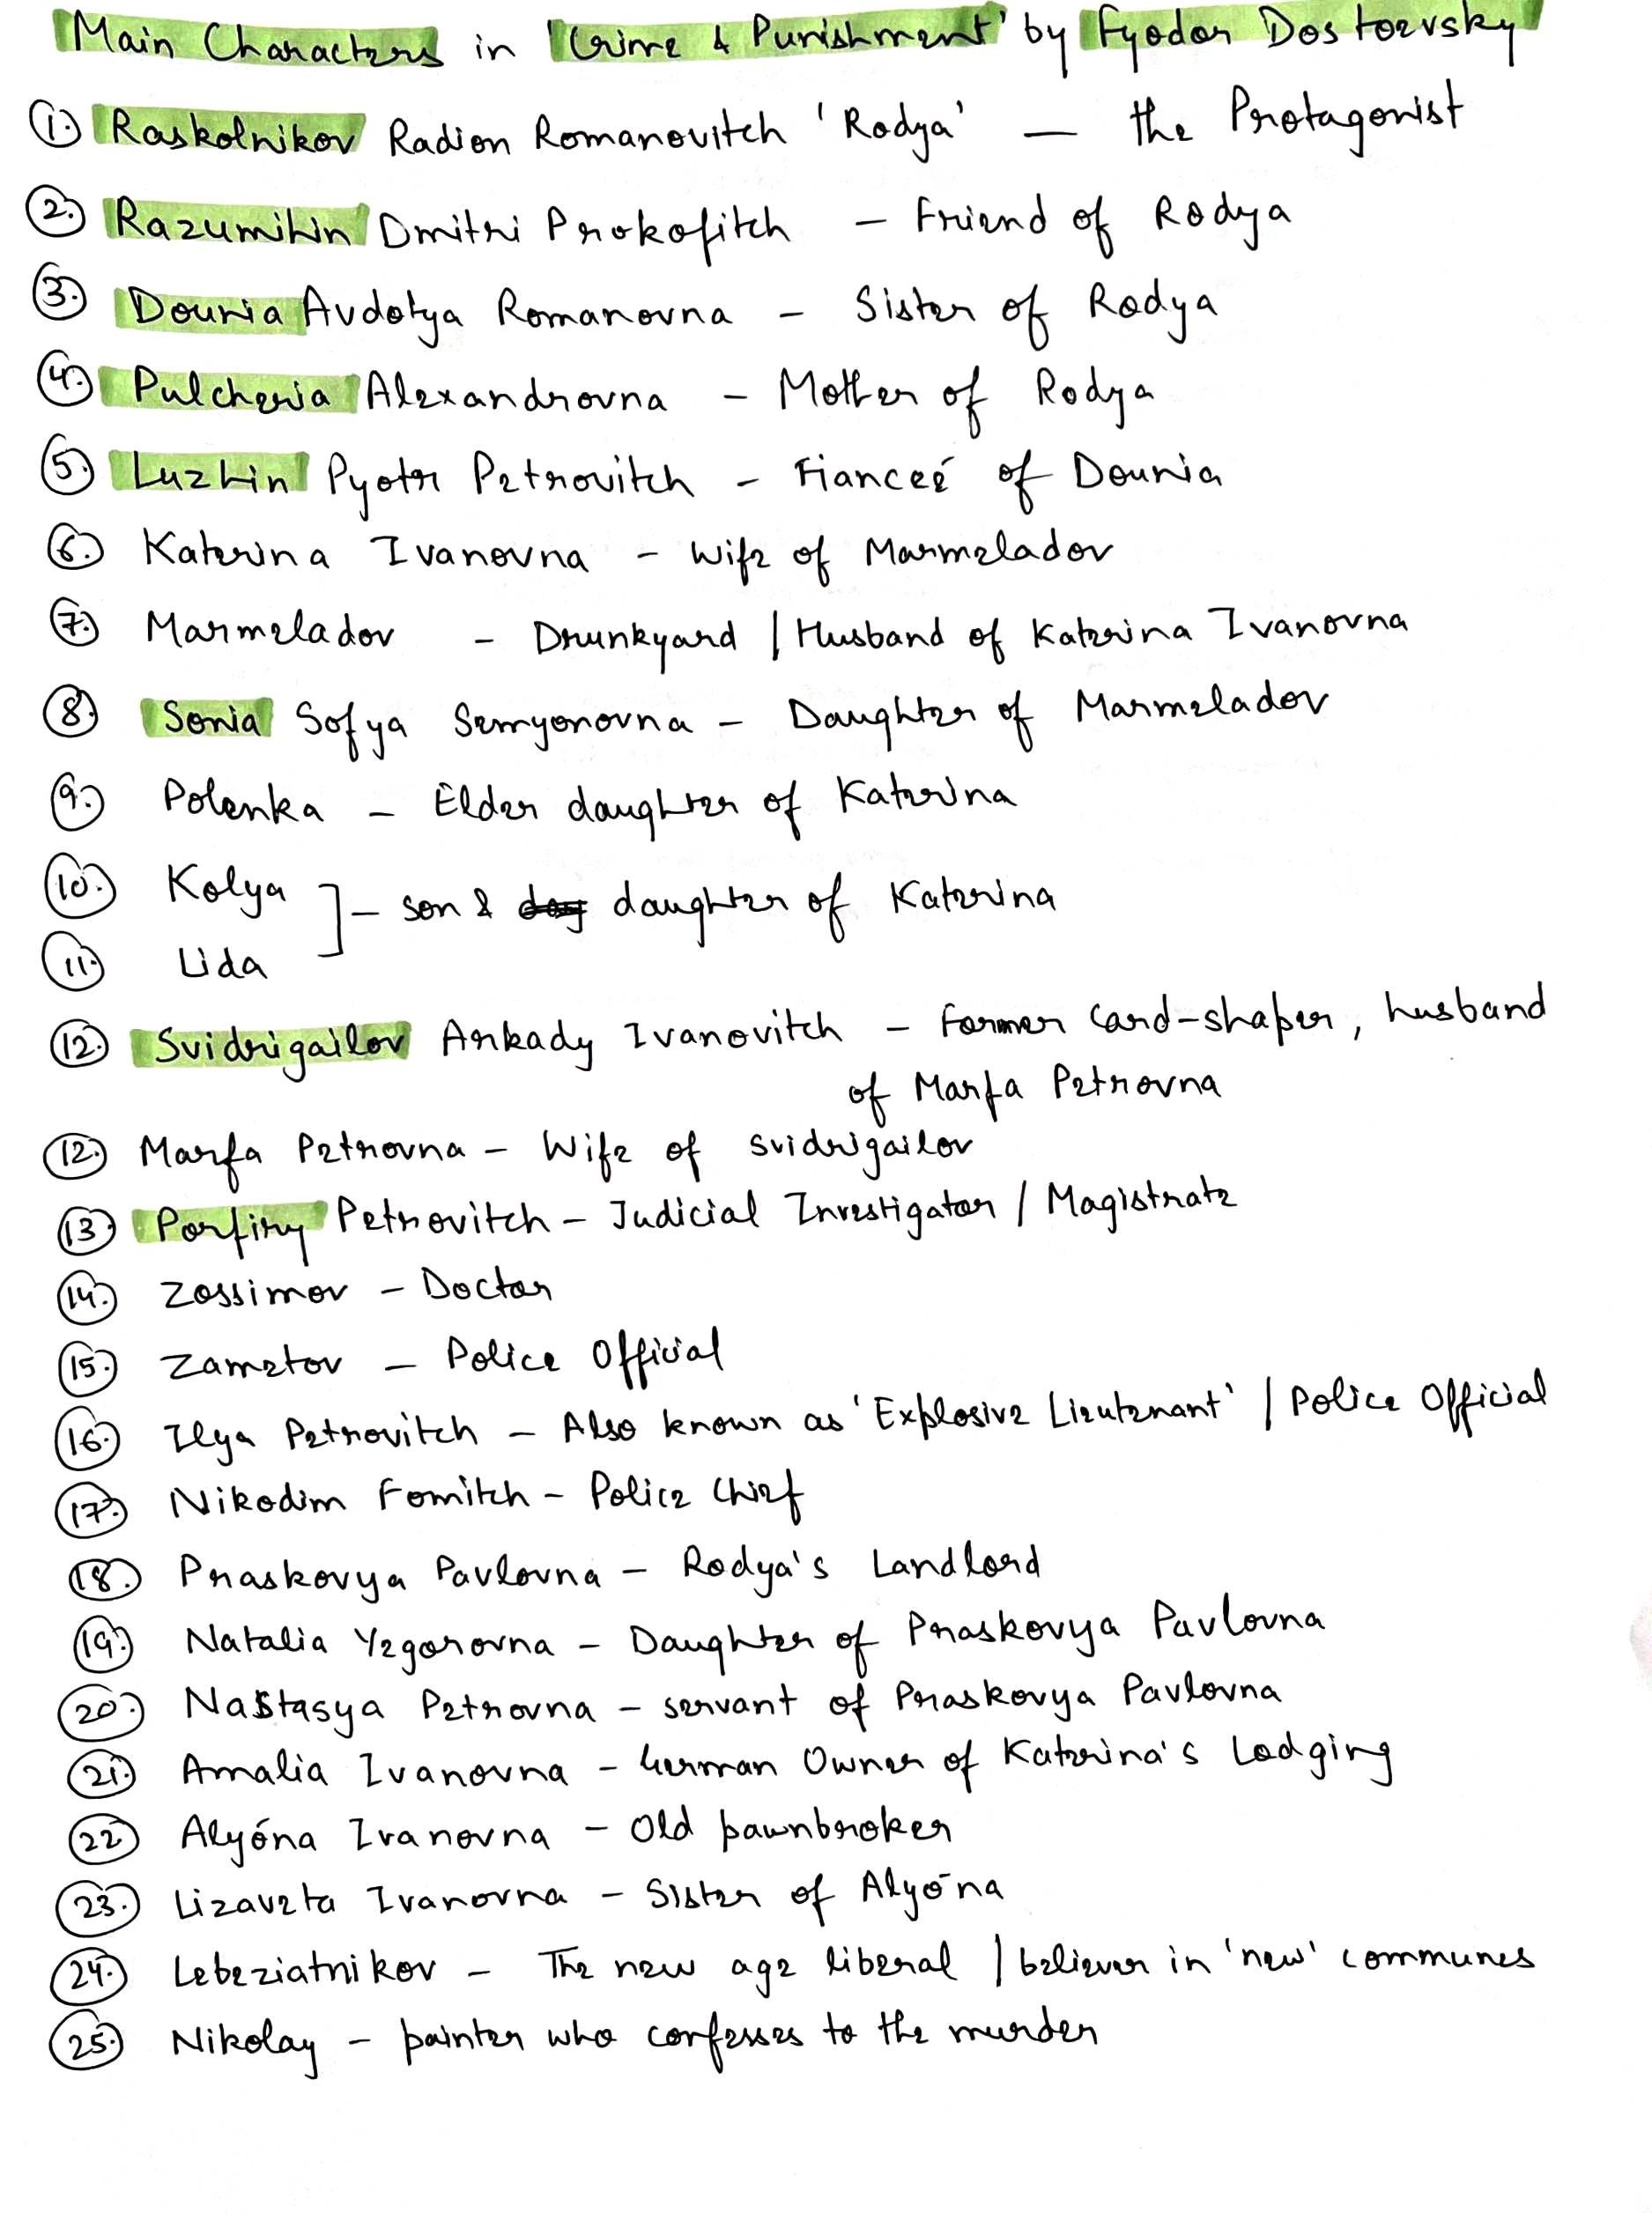 Main Characters in 'Crime & Punishment' by Fyodor Dostoevsky
1. Raskolnikov Radion Romanovitch 'Rodya' — the Protagonist
2. Razumihin Dmitri Prokofitch – Friend of Rodya
3. Dounia Avdotya Romanovna – Sister of Rodya
4. Pulcheria Alexandrovna – Mother of Rodya
5. Luzhin Pyotr Petrovitch – Fianceé of Dounia
6. Katerina Ivanovna – Wife of Marmeladov
7. Marmeladov – Drunkyard / Husband of Katerina Ivanovna
8. Sonia Sofya Semyonovna – Daughter of Marmeladov
9. Polenka – Elder daughter of Katerina
10. Kolya ]– son & daughter of Katerina
11. Lida
12. Svidrigailov Arkady Ivanovitch – Former card-shaper, husband
of Marfa Petrovna
12. Marfa Petrovna – Wife of Svidrigailov
13. Porfiry Petrovitch – Judicial Investigator / Magistrate
14. Zossimov – Doctor
15. Zametov – Police Official
16. Ilya Petrovitch – Also known as 'Explosive Lieutenant' / Police Official
17. Nikodim Fomitch – Police Chief
18. Praskovya Pavlovna – Rodya's Landlord
19. Natalia Yegorovna – Daughter of Praskovya Pavlovna
20. Nastasya Petrovna – servant of Praskovya Pavlovna
21. Amalia Ivanovna – German Owner of Katerina's Lodging
22. Alyóna Ivanovna – Old pawnbroker
23. Lizaveta Ivanovna – Sister of Alyóna
24. Lebeziatnikov – The new age liberal / believer in 'new' communes
25. Nikolay – painter who confesses to the murder